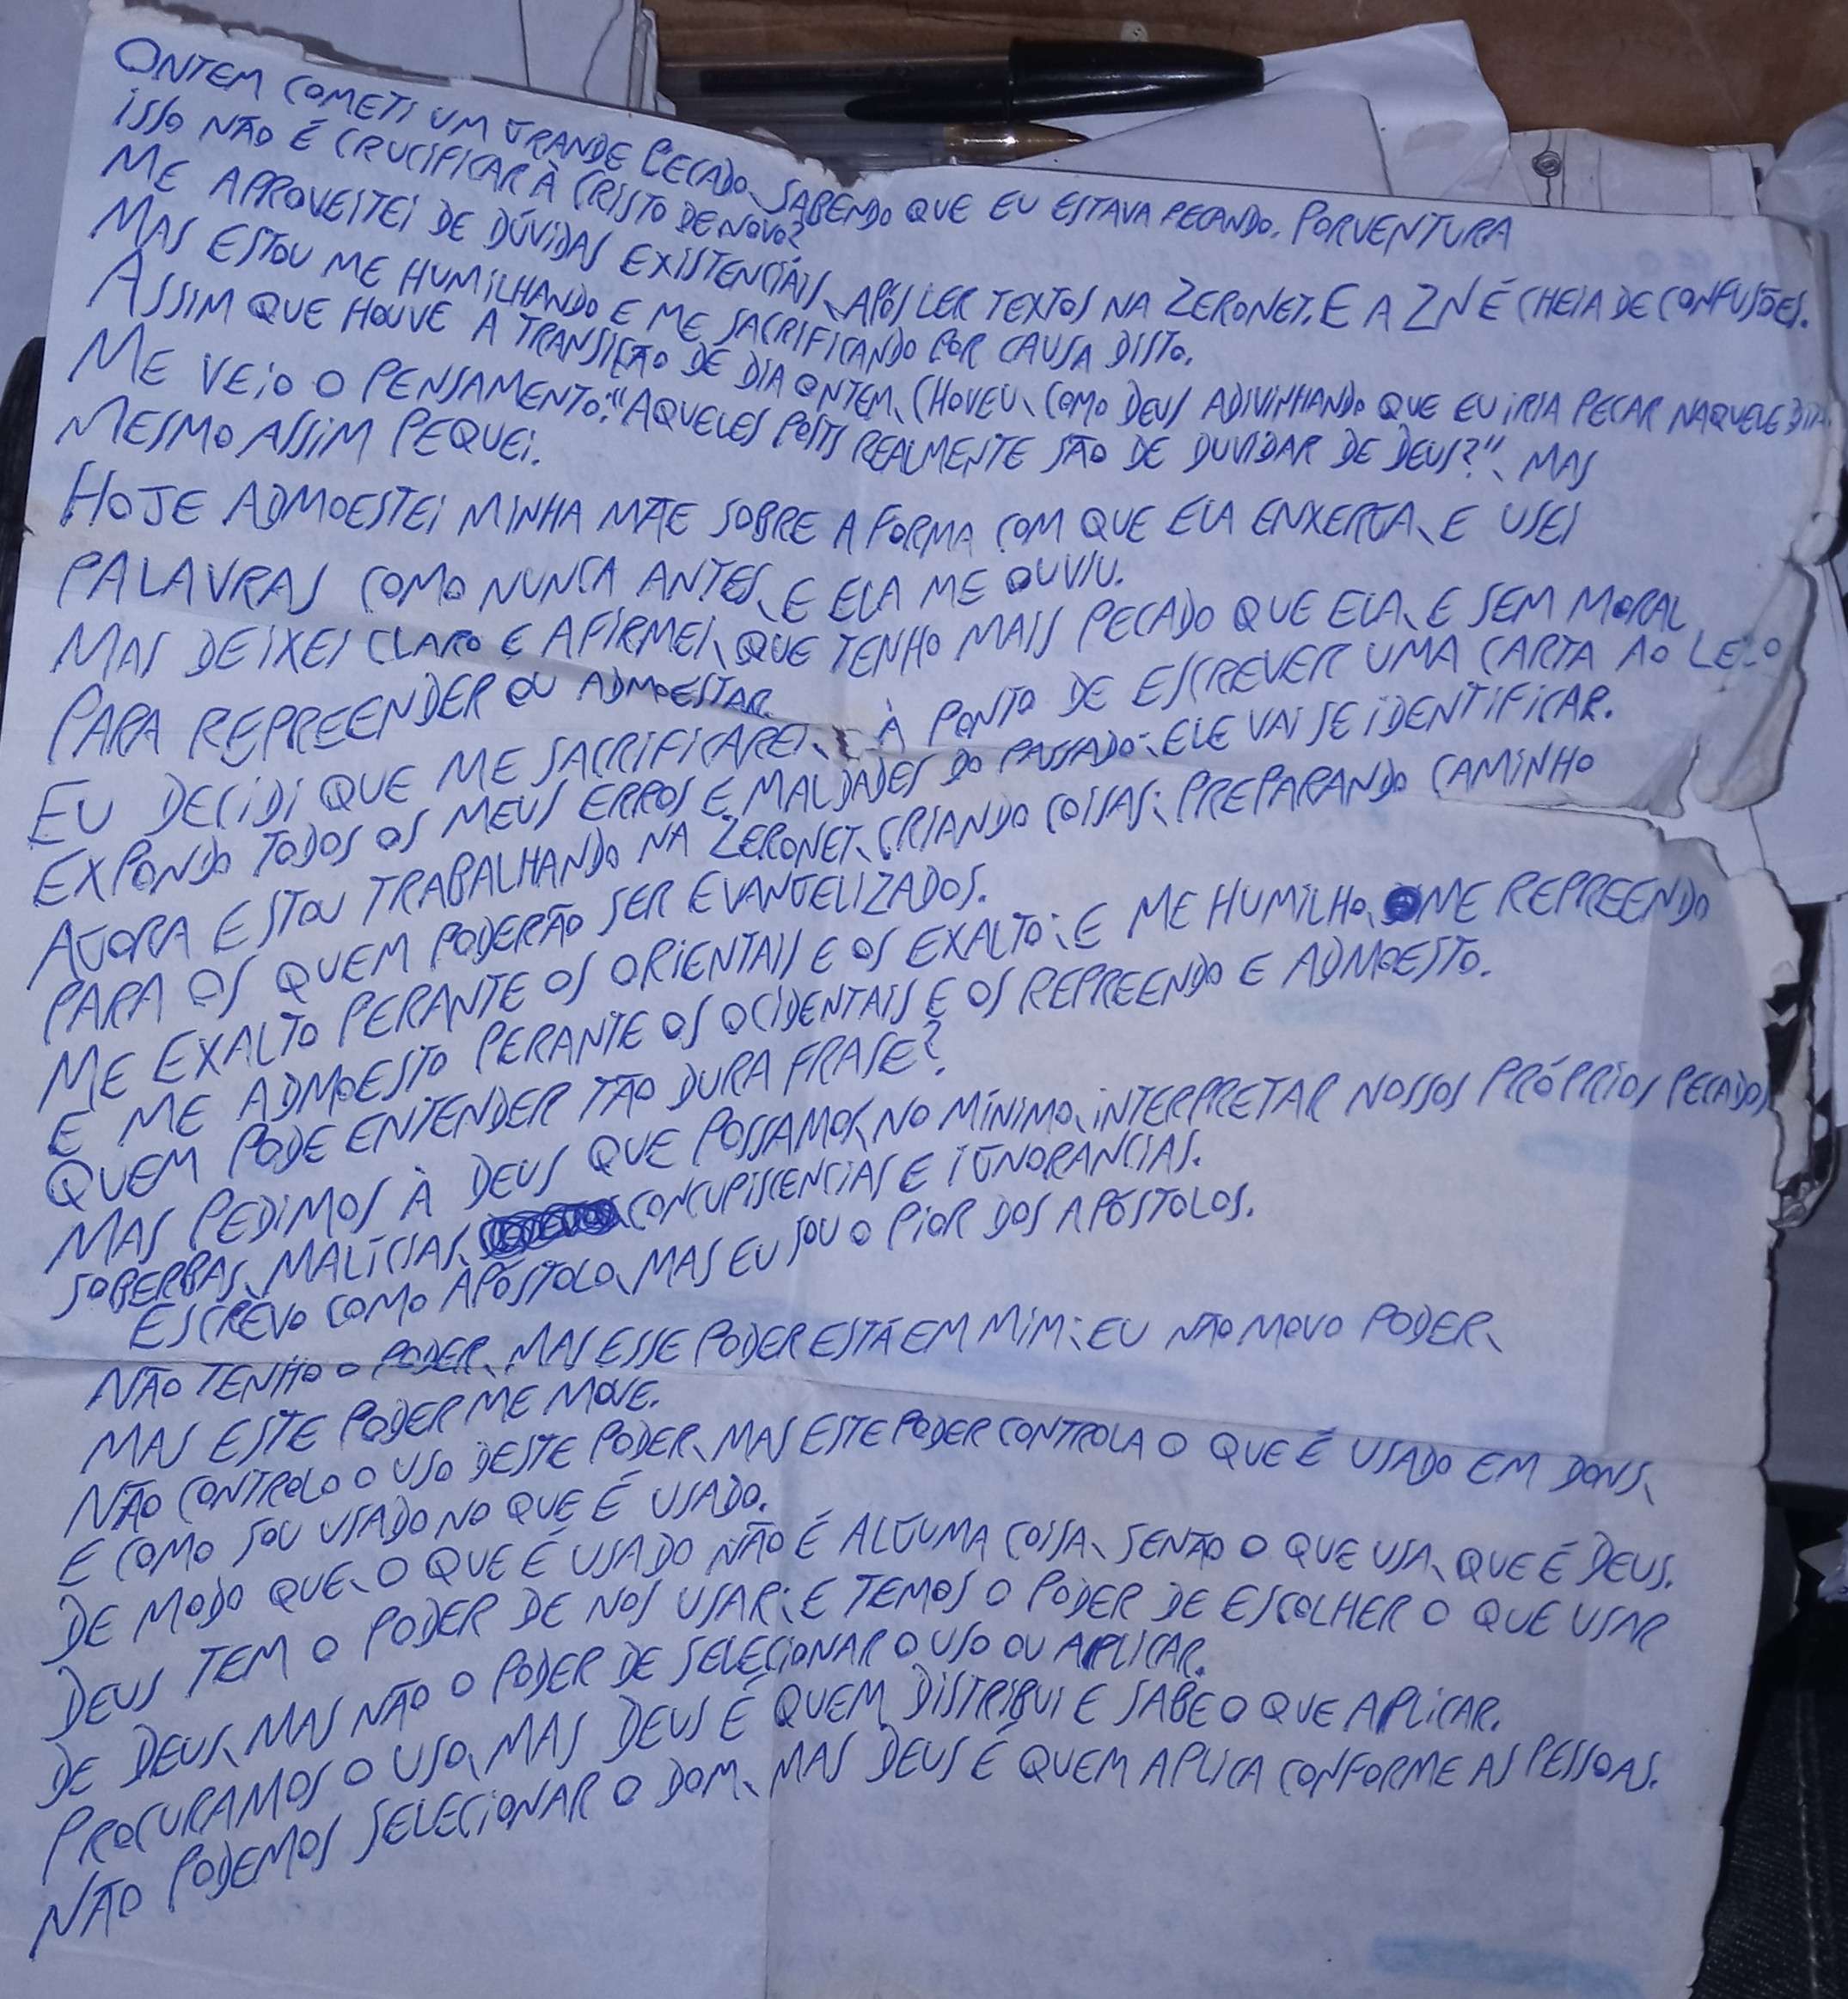 ONTEM COMETI UM GRANDE PECADO, SABENDO QUE EU ESTAVA PECANDO. PORVENTURA
ISSO NÃO É CRUCIFICAR À CRISTO DE NOVO?
ME APROVEITEI DE DÚVIDAS EXISTENCIÁIS, APÓS LER TEXTOS NA ZERONET. E A ZN É CHEIA DE CONFUSÕES.
MAS ESTOU ME HUMILHANDO E ME SACRIFICANDO POR CAUSA DISTO.
ASSIM QUE HOUVE A TRANSIÇÃO DE DIA ONTEM, CHOVEU, COMO DEUS ADIVINHANDO QUE EU IRIA PECAR NAQUELE DIA.
ME VEIO O PENSAMENTO: "AQUELES POSTS REALMENTE SÃO DE DUVIDAR DE DEUS?", MAS
MESMO ASSIM PEQUEI.
HOJE ADMOESTEI MINHA MÃE SOBRE A FORMA COM QUE ELA ENXERGA, E USEI
PALAVRAS COMO NUNCA ANTES, E ELA ME OUVIU.
MAS DEIXEI CLARO E AFIRMEI, QUE TENHO MAIS PECADO QUE ELA, E SEM MORAL
PARA REPREENDER OU ADMOESTAR.
EU DECIDI QUE ME SACRIFICAREI, À PONTO DE ESCREVER UMA CARTA AO
EXPONDO TODOS OS MEUS ERROS E MALDADES DO PASSADO; ELE VAI SE IDENTIFICAR.
AGORA ESTOU TRABALHANDO NA ZERONET, CRIANDO COISAS; PREPARANDO CAMINHO
PARA OS QUEM PODERÃO SER EVANGELIZADOS.
ME EXALTO PERANTE OS ORIENTAIS E OS EXALTO; E ME HUMILHO, ME REPREENDO
E ME ADMOESTO PERANTE OS OCIDENTAIS E OS REPREENDO E ADMOESTO.
QUEM PODE ENTENDER TÃO DURA FRASE?
MAS PEDIMOS À DEUS QUE POSSAMOS, NO MÍNIMO, INTERPRETAR NOSSOS PRÓPRIOS PECADOS,
SOBERBAS, MALÍCIAS, CONCUPISCENCIAS E IGNORANCIAS.
ESCREVO COMO APÓSTOLO, MAS EU SOU O PIOR DOS APÓSTOLOS.
NÃO TENHO O PODER, MAS ESSE PODER ESTÁ EM MIM; EU NÃO MOVO PODER,
MAS ESTE PODER ME MOVE.
NÃO CONTROLO O USO DESTE PODER, MAS ESTE PODER CONTROLA O QUE É USADO EM DONS,
E COMO SOU USADO NO QUE É USADO.
DE MODO QUE, O QUE É USADO NÃO É ALGUMA COISA, SENÃO O QUE USA, QUE É DEUS.
DEUS TEM O PODER DE NOS USAR; E TEMOS O PODER DE ESCOLHER O QUE USAR
DE DEUS, MAS NÃO O PODER DE SELECIONAR O USO OU APLICAR.
PROCURAMOS O USO, MAS DEUS É QUEM DISTRIBUI E SABE O QUE APLICAR.
NÃO PODEMOS SELECIONAR O DOM, MAS DEUS É QUEM APLICA CONFORME AS PESSOAS.